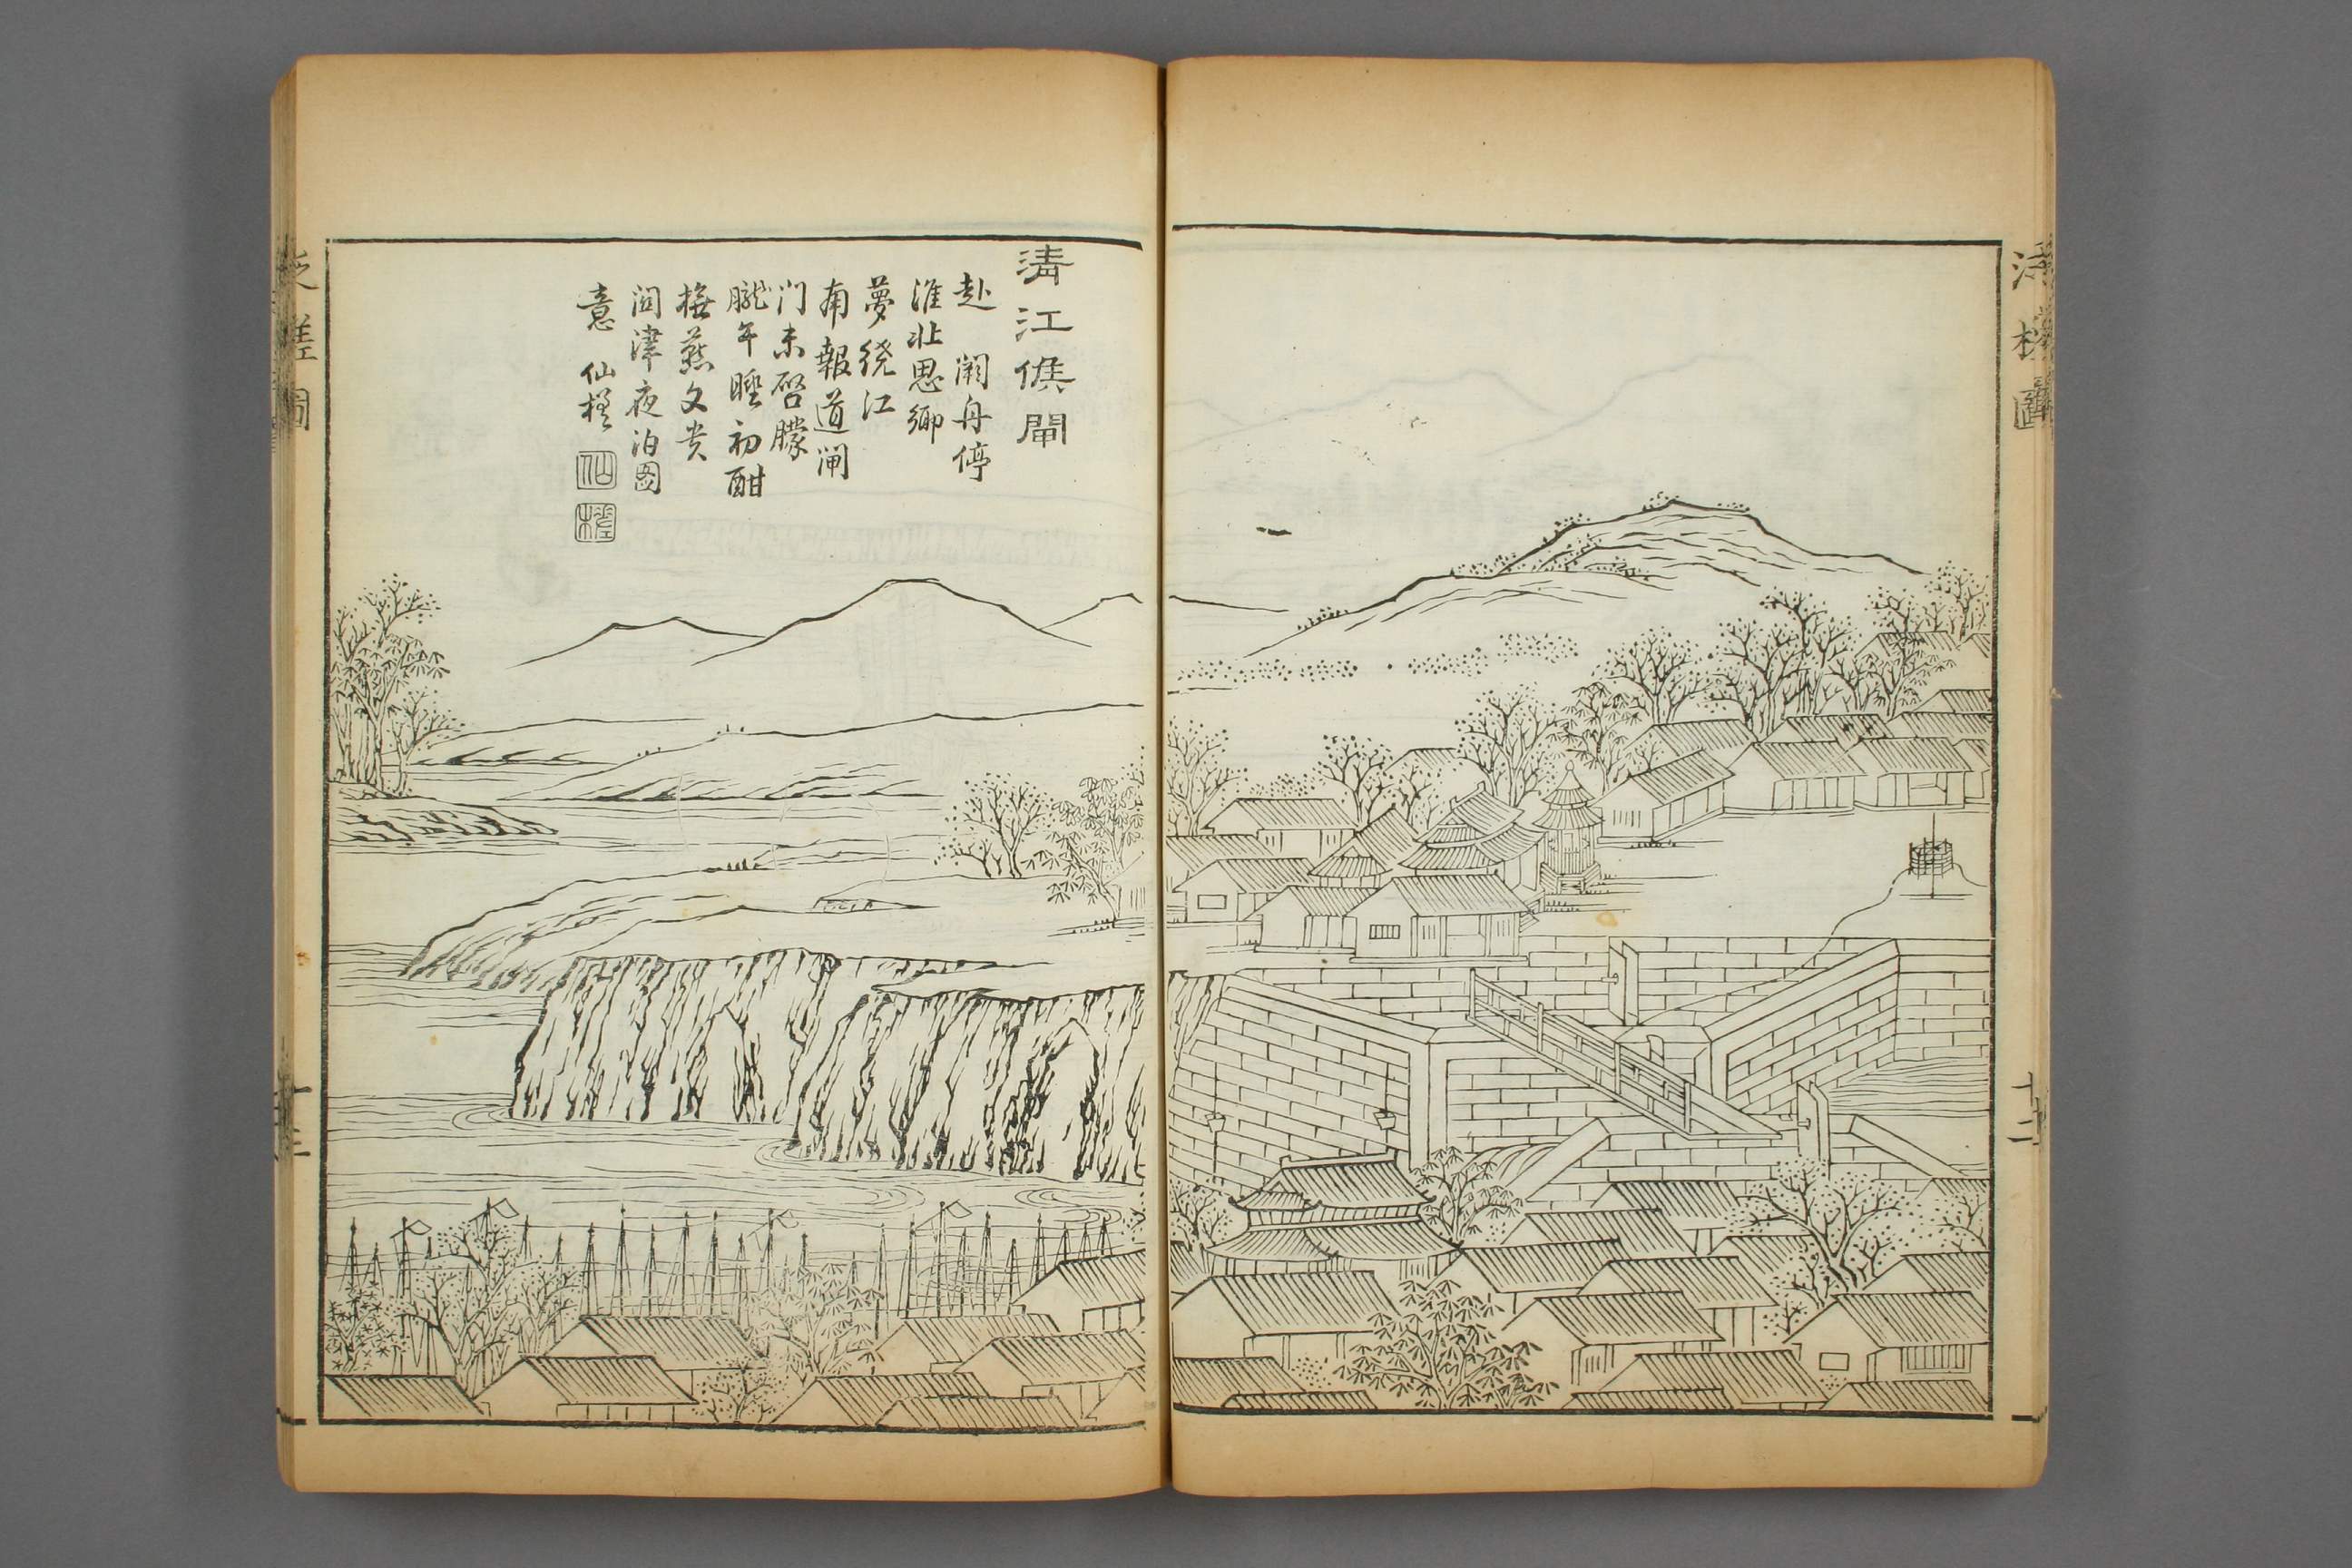 泛槎圖
十二
清江候閘
赴 闕舟停
淮北思鄉
夢繞江
南報道閘
门未啓朦
朧午睡初酣
橅燕文貴
關津夜泊圖
意 仙槎
仙
槎
泛槎圖
十三